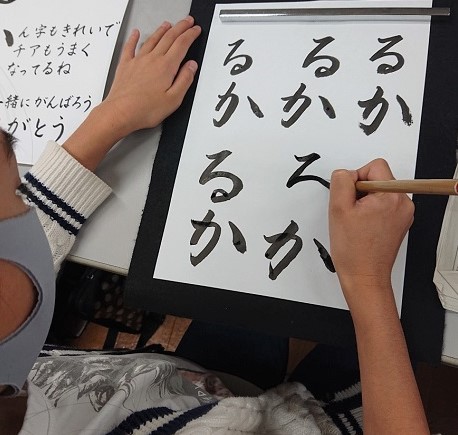 ん字もきれいで
チアもうまく
なってるね
一緒にがんばろう
がとう
るか
るか
るか
か
るか